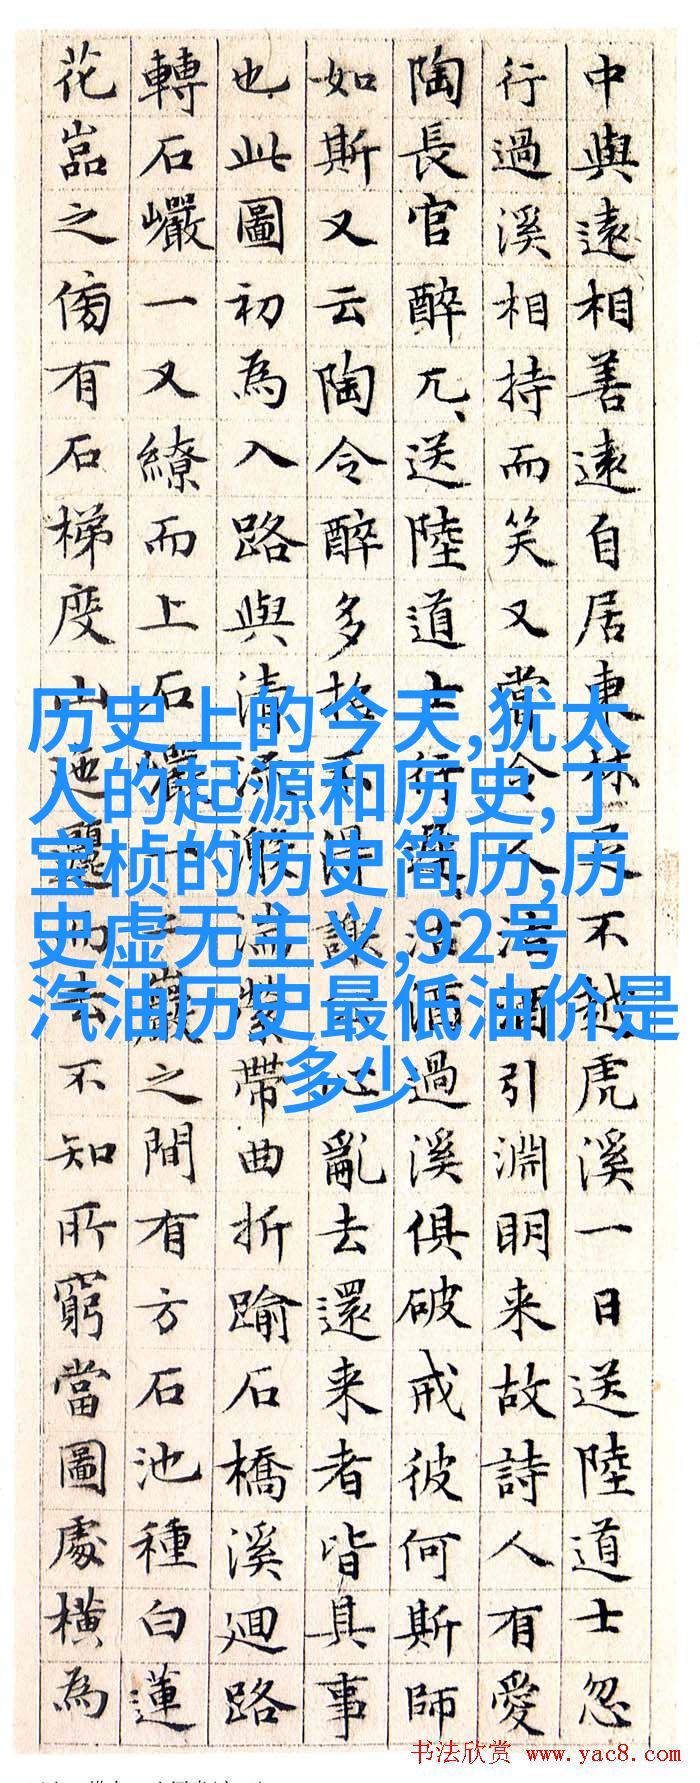 中與遠相善遠自居東林足不越虎溪一日送陸道士忽
行過溪相持而笑又嘗令人沽酒引淵明来故詩人有愛
陶長官醉兀、送陸道士行遲、沽酒過溪俱破戒彼何斯師
如斯又云陶令醉多招不得謝心亂去還来者皆其事
也此圖初為入路與清流激湍縈帶曲折踰石橋溪迴路
轉石巖一又繚而上石巖一巖之間有方石池種白蓮
花嵓之傍有石梯度山迤邐而去不知所窮當圖處橫為
历史上的今天,犹太
人的起源和历史,丁
宝桢的历史简历,历
史虚无主义,92号
汽油历史最低油价是
多少
书法欣赏 www.yac8.com